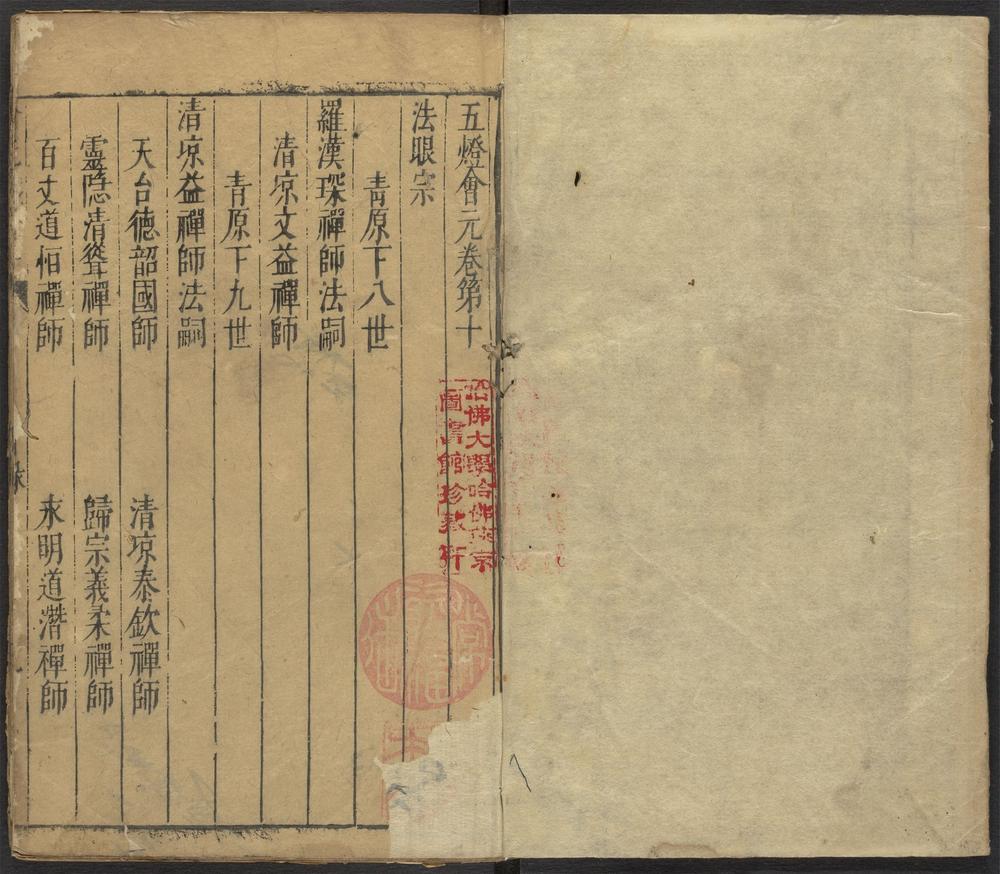 五燈會元卷第十
法眼宗
青原下八世
羅漢琛禪師法嗣
清凉文益禪師
青原下九世
清凉益禪師法嗣
天台德韶國師
清凉泰欽禪師
靈隠清聳禪師
歸宗義柔禪師
百丈道恒禪師
永明道潛禪師
哈佛大學哈佛燕京
圖書館珍藏所